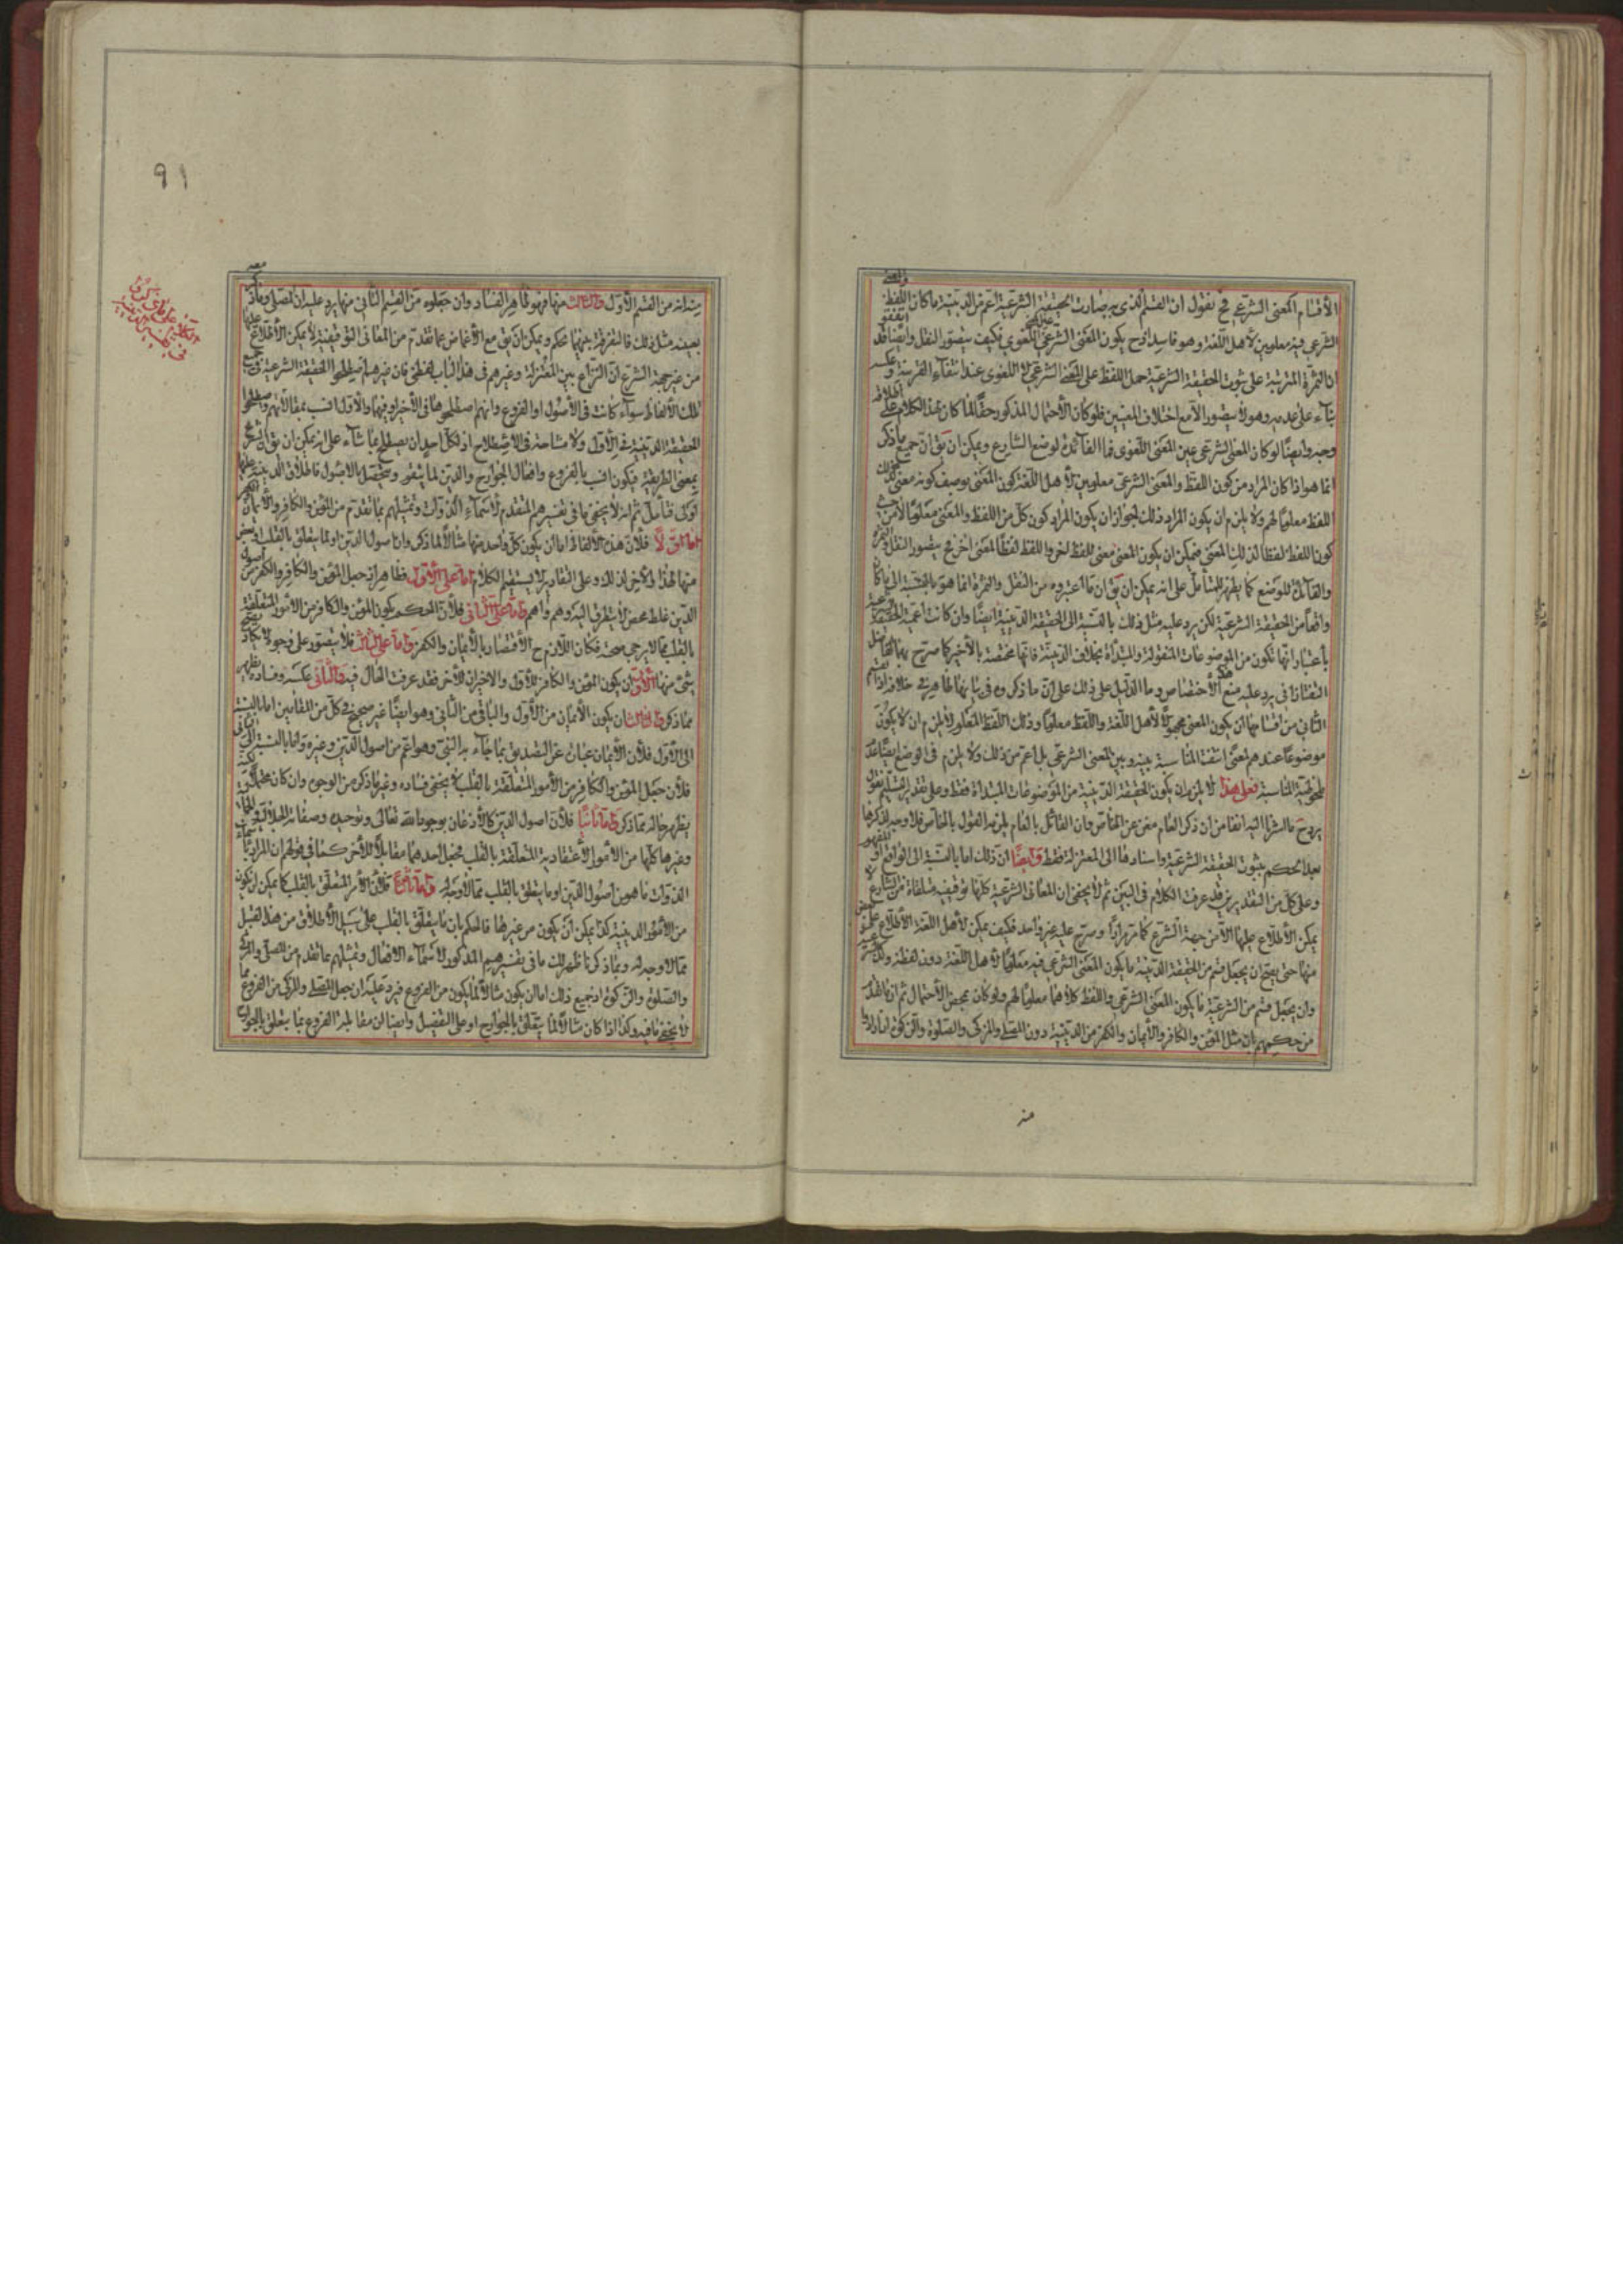 الأقسام المعنى الشرعي فح نقول ان القسم الذى به صارت الحقيقة الشرعية اعم من الدينية ما كان اللفظ والمعنى
الشرعي فيه معلومين لأهل اللغة وهو فاسد اذ ح يكون المعنى الشرعي اللغوي فكيف يتصور النقل وايضا قد
ان الثمرة المترتبة على ثبوت الحقيقة الشرعية حمل اللفظ على المعنى الشرعي اللغوى عند انتفاء القرينة وعكسه
بناء على عدمه وهو لا يتصور الا مع اختلاف المعنيين فلو كان الأحتمال المذكور حقا لما كان لهذا الكلام على اطلاقه
وجه وايضا لو كان المعنى الشرعي عين المعنى اللغوى فما الفائدة لوضع الشارع ويمكن ان يق ان جميع ما ذكر
انما هو اذا كان المراد من كون اللفظ والمعنى الشرعى معلومين لأهل اللغة كون المعنى بوصف كونه معنى لذلك
اللفظ معلوما لهم ولا يلزم ان يكون المراد ذلك لجواز ان يكون المراد كون كل من اللفظ والمعنى معلوما لا من حيث
كون اللفظ لفظا لذلك المعنى فيمكن ان يكون المعنى معنى للفظ اخر واللفظ لفظا لمعنى اخر فح يتصور النقل
والفائدة للوضع كما يظهر للمتأمل على انه يمكن ان يق ان ما اعتبروه من النقل والثمرة انما هو بالنسبة الى ما كان
واقعا من الحقيقة الشرعية لكن يرد عليه مثل ذلك بالنسبة الى الحقيقة الدينية ايضا وان كانت اعمية الحقيقة الشرعية
بأعتبار انها تكون من الموضوعات المنقولة والمبتدأة بخلاف الدينية فانها مختصة بالأخير كما صرح بهذا الفاضل
التفتازانى يرد عليه منع هذا الأختصاص وما الدليل على ذلك على ان ما ذكروه فى بيانها ظاهر فى خلافه اذا لقسم
الثاني من اقسامها ان يكون المعنى مجهولا لأهل اللغة واللفظ معلوما وذلك اللفظ المعلوم لا يلزم ان لا يكون
موضوعا عندهم لمعنى انتفت المناسبة بينه وبين المعنى الشرعي بل اعم من ذلك ولا يلزم فى الوضع ايضا عدم
ملاحظة المناسبة فعلى هذا لا يلزم ان يكون الحقيقة الدينية من الموضوعات المبتدأة فقط وعلى تقدير التسليم نقول
يرد ح ما اشرنا اليه انفا من ان ذكر العام مغن عن الخاص وان القائل بالعام يلزمه القول بالخاص فلا وجه لذكرها
بعد الحكم بثبوت الحقيقة الشرعية واسنادها الى المعتزلة فقط وايضا ان ذلك اما بالنسبة الى الواقع او المفهوم
وعلى كل من التقديرين قد عرفت الكلام فى البين ثم لا يخفى ان المعانى الشرعية كلها توقيفية متلقاة من الشارع لا
يمكن الأطلاع عليها الا من جهة الشرع كما مر مرارا وصرح عليه غير واحد فكيف يمكن لأهل اللغة الأطلاع على بعض
منها حتى يصح ان يجعل قسم من الحقيقة الدينية ما يكون المعنى الشرعي فيه معلوما لأهل اللغة دون لفظه وكذا
وان يجعل قسم من الشرعية ما يكون المعنى الشرعي واللفظ كلاهما معلوما لهم ولو كان بمحض الأحتمال ثم ان ما هذا
من حكمهم بان مثل المؤمن والكافر والأيمان والكفر من الدينية دون المصلى والمزكى والصلوة والزكوة ان ارادوا
منه
٩١
منه انه من القسم الأول والثالث منها فهو ظاهر الفساد وان جعلوه من القسم الثانى منها يرد عليه ان المصلى وما ذكر معه
بعينه مثل ذلك فالتفرقة بينهما تحكم ويمكن ان يق مع الأغماض عما تقدم من المعانى التوقيفية لا يمكن الأطلاع عليها
من غير جهة الشرع ان النزاع بين المعتزلة وغيرهم فى هذا الباب لفظى فان غيرهم اصطلحوا الحقيقة الشرعية فى جميع
تلك الألفاظ سواء كانت فى الأصول او الفروع وانهم اصطلحوها فى الأخير او فيهما والأول انسب بمقالاتهم واصطلحوا
الحقيقة الدينية فى الأول ولا مشاحة فى الأصطلاح اذ لكل احد ان يصطلح بما شاء على انه يمكن ان يق ان الشرع
بمعنى الطريقة فيكون انسب بالفروع وافعال الجوارح والدين لما يتقرر ويتحصل بالأصول فاطلاق الدينية عليها
اولى فتأمل ثم انه لا يخفى ما فى تفسيرهم المتقدم لأسماء الذوات وتمثيلهم بما تقدم من المؤمن والكافر والأيمان والكفر
اما اولا فلأن هذه الألفاظ اما ان يكون كل واحد منها مثالا لما ذكر وانا اصول الدين او لما يتعلق بالقلب او بعض
منها لهذا والأخر لذلك وعلى التقادير لا يستقيم الكلام اما على الأول فظاهر ان جعل المؤمن والكافر والكفر من اصول
الدين غلط محض لا يتطرق اليه وهم واهم واما على الثانى فلأن الحكم بكون المؤمن والكافر من الأمور المتعلقة
بالقلب مما لا يرجى صحته فكان اللازم ح الأقتصار بالأيمان والكفر واما على الثالث فلا يتصور على وجوه لا يكاد يصح
شئ منها الأول ان يكون المؤمن والكافر للأول والأخيران للأخر فقد عرفت الحال فيه والثانى عكسه وفساده يظهر
مما ذكر والثالث ان يكون الأيمان من الأول والباقى من الثانى وهو ايضا غير صحيح فى كل من المقامين اما بالنسبة
الى الأول فلأن الأيمان عبارة عن التصديق بما جاء به النبى وهو اعم من اصول الدين وغيره واما بالنسبة الى الثانى
فلأن جعل المؤمن والكافر من الأمور المتعلقة بالقلب لا يخفى فساده وغير ما ذكر من الوجوه وان كان محتملا لكنه
يظهر حاله مما ذكر واما ثانيا فلأن اصول الدين كالأذعان بوجود الله تعالى وتوحيده وصفاته الجلالية والجمالية
وغيرها كلها من الأمور الأعتقادية المتعلقة بالقلب فجعل احدهما مقابلا للأخر كما فى قولهم ان المراد باسماء
الذوات ما هو من اصول الدين او ما يتعلق بالقلب مما لا وجه له واما ثالثا فلأن الأمر المتعلق بالقلب كما يمكن ان يكون
من الأمور الدينية كذا يمكن ان يكون من غيرها فالحكم بان ما يتعلق بالقلب على سبيل الأطلاق من هذا القبيل
مما لا وجه له وبما ذكرنا ظهر لك ما فى تفسيرهم المذكور لأسماء الأفعال وتمثيلهم بما تقدم من المصلى والمزكى
والصلوة والزكوة اذ جميع ذلك اما ان يكون مثالا لما يكون من الفروع فيرد عليه ان جعل المصلى والمزكى من الفروع مما
لا يخفى ما فيه وكذا اذا كان مثالا لما يتعلق بالجوارح او على التفصيل وايضا ان مقابلة الفروع بما يتعلق بالجوارح